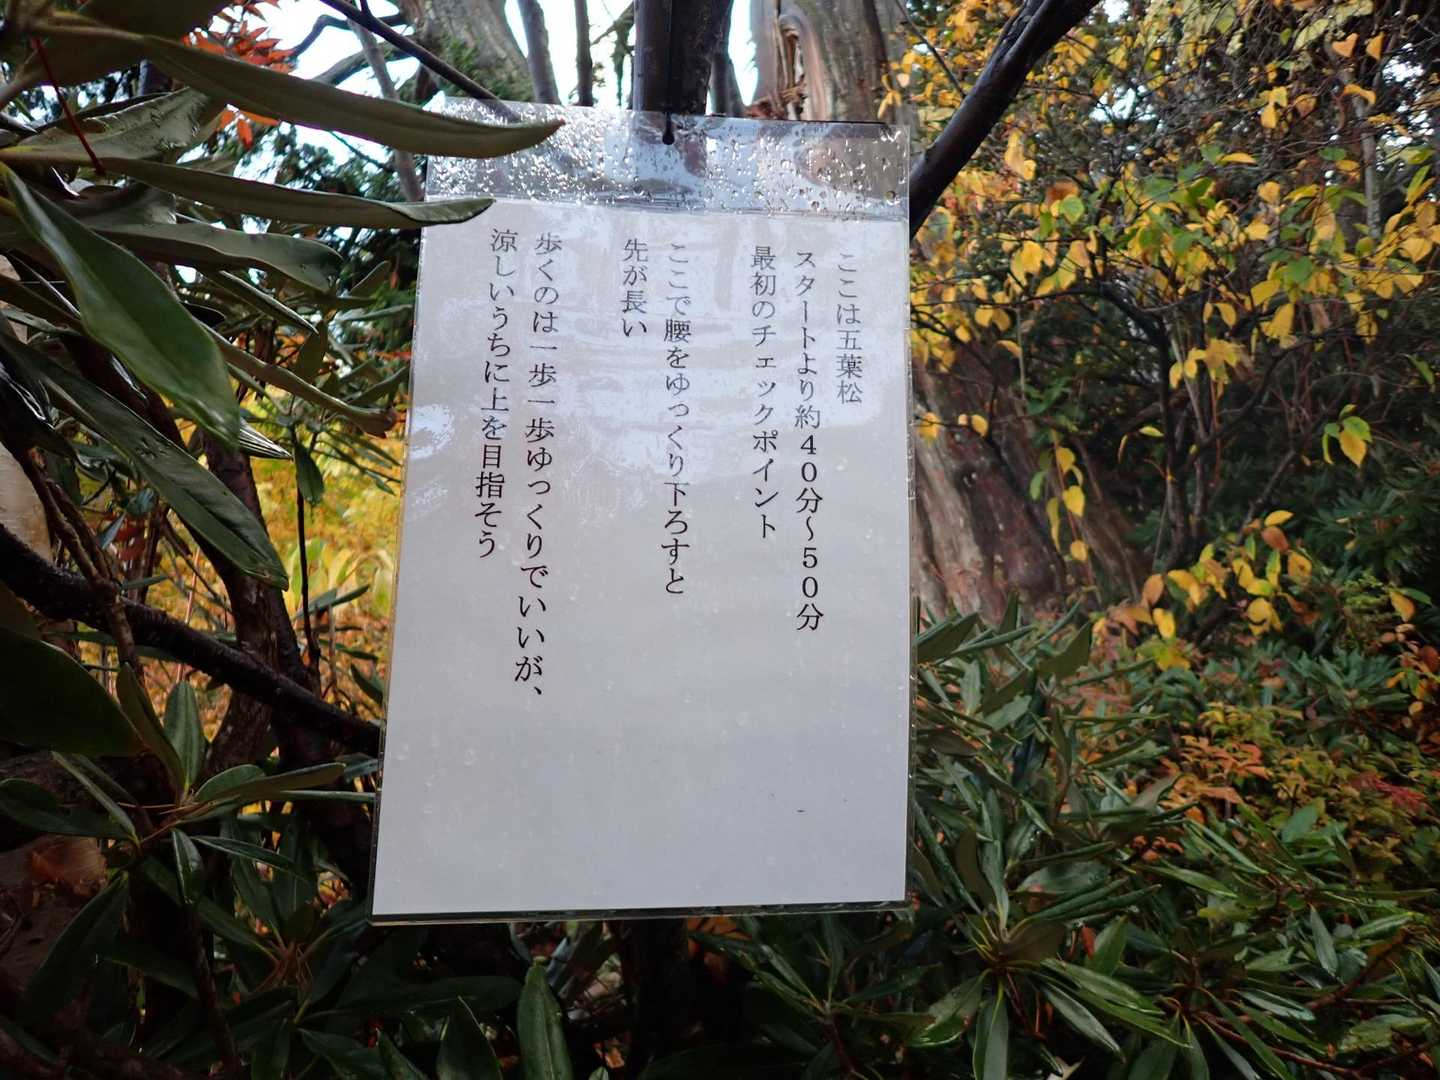 ここは五葉松
スタートより約４０分～５０分
最初のチェックポイント
ここで腰をゆっくり下ろすと
先が長い
歩くのは一歩一歩ゆっくりでいいが、
涼しいうちに上を目指そう